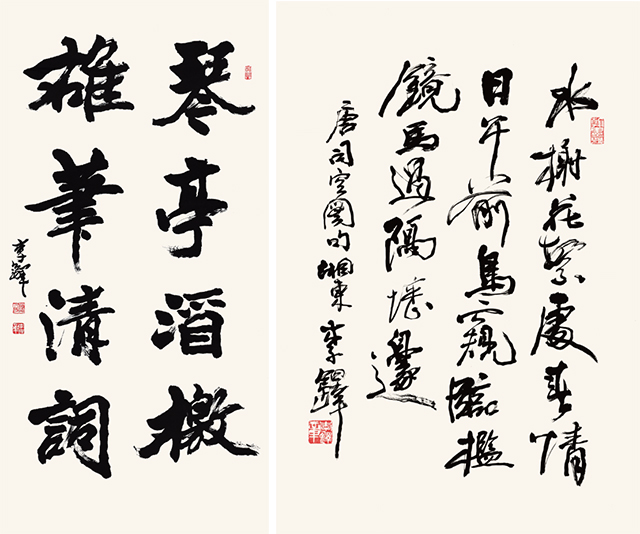 琴亭滔檄
雄筆清詞
李鐸
水榭花繁處春情
日午前鳥窺臨檻
鏡馬過隔墻邊
唐司空圖句湘東李鐸